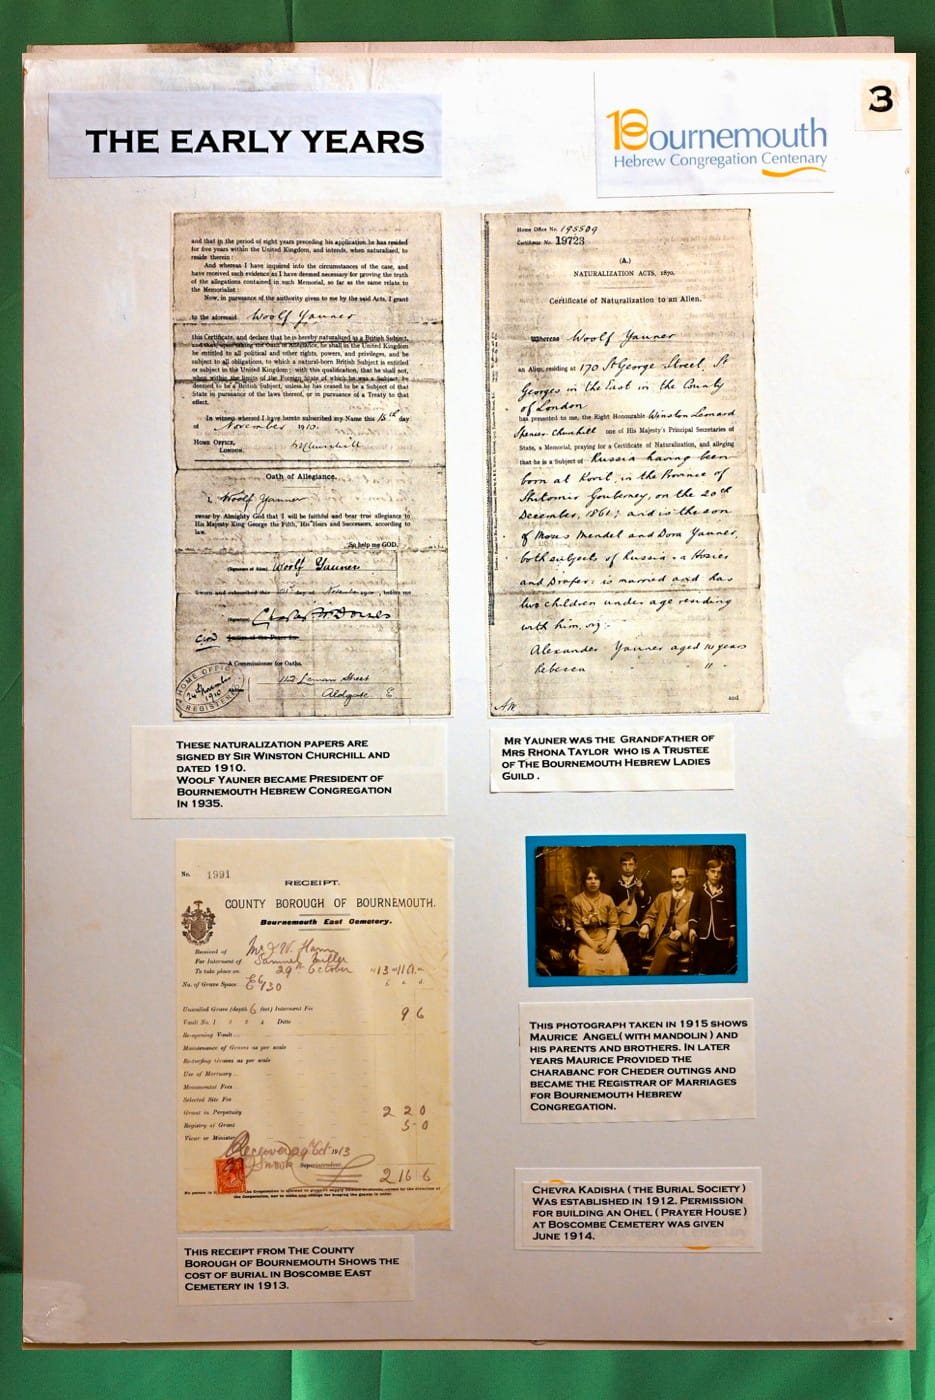 THE EARLY YEARS
100 Bournemouth
Hebrew Congregation Centenary
3
and that in the period of eight years preceding his application he has resided
for five years within the United Kingdom, and intends, when naturalized, to
reside therein:
And whereas I have inquired into the circumstances of the case, and
have received such evidence as I have deemed necessary for proving the truth
of the allegations contained in such Memorial, so far as the same relate to
the Memorialist:
Now, in pursuance of the authority given to me by the said Acts, I grant
to the aforesaid Woolf Yauner
this Certificate, and declare that he is hereby naturalized as a British Subject,
and that, upon taking the Oath of Allegiance, he shall in the United Kingdom
be entitled to all political and other rights, powers, and privileges, and be
subject to all obligations, to which a natural-born British Subject is entitled
or subject in the United Kingdom; with this qualification, that he shall not,
when within the limits of the Foreign State of which he was a Subject, be
deemed to be a British Subject, unless he has ceased to be a Subject of that
State in pursuance of the laws thereof, or in pursuance of a Treaty to that
effect.
In witness whereof I have hereto subscribed my Name this 15th day
of November 1910.
HOME OFFICE,
LONDON.
Oath of Allegiance.
I, Woolf Yauner
swear by Almighty God that I will be faithful and bear true allegiance to
His Majesty King George the Fifth, His Heirs and Successors, according to
law.
So help me GOD.
(Signature of Alien) Woolf Yauner
Sworn and subscribed this day of November 1910, before me
(Signature)
A Commissioner for Oaths.
112 Leman Street
Aldgate E
HOME OFFICE
24 November
1910
REGISTERED
Home Office No. 195509
Certificate No. 19723
(A.)
NATURALIZATION ACTS, 1870.
Certificate of Naturalization to an Alien.
Whereas Woolf Yauner
an Alien, residing at 170 St George Street, St
Georges in the East in the County
of London
has presented to me, the Right Honourable Winston Leonard
Spencer Churchill one of His Majesty's Principal Secretaries of
State, a Memorial, praying for a Certificate of Naturalization, and alleging
that he is a Subject of Russia having been
born at in the Province of
on the 20th
December, 1861; and is the son
of Moses Mendel and Dora Yauner,
both subjects of Russia - a Hosier
and Draper: is married and has
two children under age residing
with him, viz:
Alexander Yauner aged years
Rebecca " " 11 "
and
THESE NATURALIZATION PAPERS ARE
SIGNED BY SIR WINSTON CHURCHILL AND
DATED 1910.
WOOLF YAUNER BECAME PRESIDENT OF
BOURNEMOUTH HEBREW CONGREGATION
IN 1935.
MR YAUNER WAS THE GRANDFATHER OF
MRS RHONA TAYLOR WHO IS A TRUSTEE
OF THE BOURNEMOUTH HEBREW LADIES
GUILD .
No. 1991
RECEIPT.
COUNTY BOROUGH OF BOURNEMOUTH.
Bournemouth East Cemetery.
Received of Mr
For Interment of Samuel
To take place on 29th October
No. of Grave Space E6 130
£ s. d.
Unwalled Grave (depth 6 feet) Interment Fee 9 6
Vault No. 1 2 3 4 Ditto
Re-opening Vault
Maintenance of Graves as per scale
Re-turfing Graves as per scale
Use of Mortuary
Monumental Fees
Selected Site Fee
Grant in Perpetuity 2 2 0
Registry of Grant 5 0
Vicar or Minister
Received 29 Oct 1913
Superintendent
2 16 6
THIS RECEIPT FROM THE COUNTY
BOROUGH OF BOURNEMOUTH SHOWS THE
COST OF BURIAL IN BOSCOMBE EAST
CEMETERY IN 1913.
THIS PHOTOGRAPH TAKEN IN 1915 SHOWS
MAURICE ANGEL( WITH MANDOLIN ) AND
HIS PARENTS AND BROTHERS. IN LATER
YEARS MAURICE PROVIDED THE
CHARABANC FOR CHEDER OUTINGS AND
BECAME THE REGISTRAR OF MARRIAGES
FOR BOURNEMOUTH HEBREW
CONGREGATION.
CHEVRA KADISHA ( THE BURIAL SOCIETY )
WAS ESTABLISHED IN 1912. PERMISSION
FOR BUILDING AN OHEL ( PRAYER HOUSE )
AT BOSCOMBE CEMETERY WAS GIVEN
JUNE 1914.